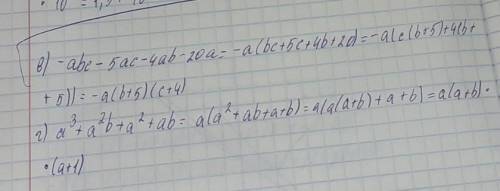 в) -abc - 5ac - 4ab - 20a = -a(bc + 5c + 4b + 20) = -a(c(b+5) + 4(b +
+ 5)) = -a(b+5)(c+4)
г) a³ + a²b + a² + ab = a(a² + ab + a + b) = a(a(a+b) + a + b) = a(a+b) ·
· (a+1)